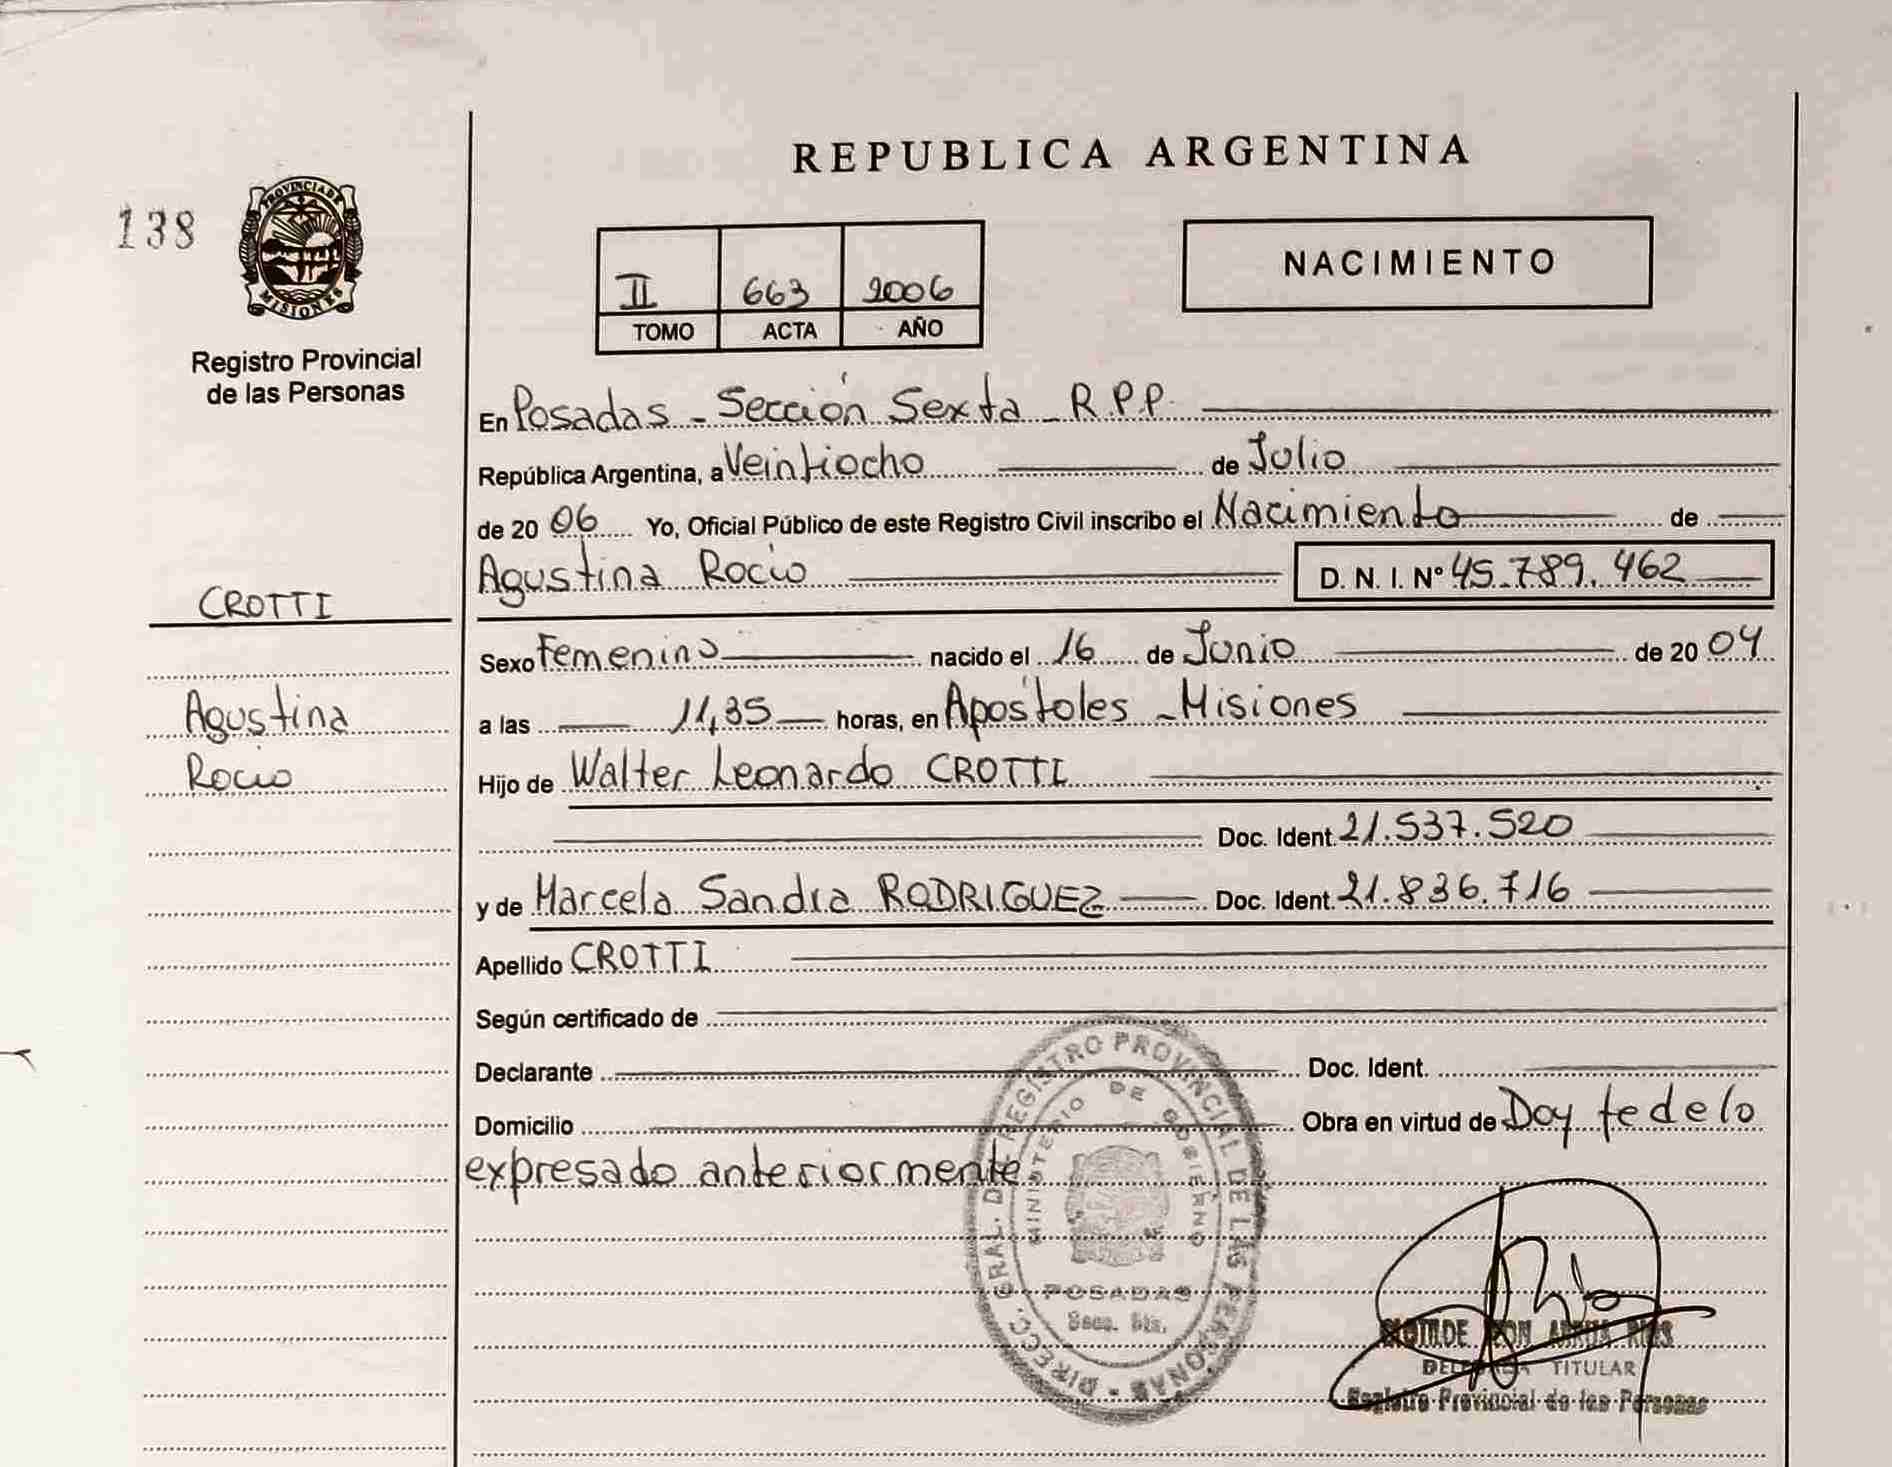 REPUBLICA ARGENTINA
138
PROVINCIA DE
MISIONES
Registro Provincial
de las Personas
II 663 2006
TOMO ACTA AÑO
NACIMIENTO
En Posadas - Sección Sexta - R.P.P.
República Argentina, a Veintiocho de Julio
de 2006 Yo, Oficial Público de este Registro Civil inscribo el Nacimiento de
Agustina Rocío D. N. I. Nº 45.789.462
CROTTI
Sexo Femenino nacido el 16 de Junio de 2004
Agustina
a las 11,35 horas, en Apóstoles - Misiones
Rocio
Hijo de Walter Leonardo CROTTI
Doc. Ident. 21.537.520
y de Marcela Sandra RODRIGUEZ Doc. Ident. 21.836.716
Apellido CROTTI
Según certificado de
Declarante Doc. Ident.
Domicilio Obra en virtud de Doy fe de lo
expresado anteriormente
DIRECC. GRAL. DEL REGISTRO PROVINCIAL DE LAS PERSONAS
MINISTERIO DE GOBIERNO
POSADAS
Secc. 6ta.
TITULAR
Registro Provincial de las Personas